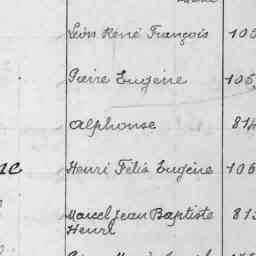 Léon René François 105
Pierre Eugène 105
Alphonse 814
Henri Félix Eugène 106
Marcel Jean Baptiste 815
Henri